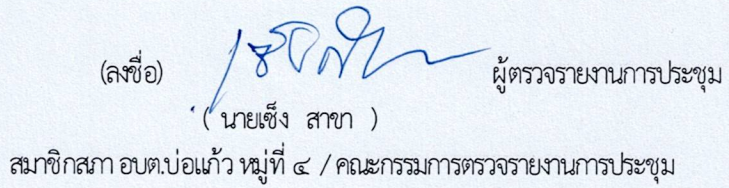 (ลงชื่อ) ผู้ตรวจรายงานการประชุม
( นายเซ็ง สาขา )
สมาชิกสภา อบต.บ่อแก้ว หมู่ที่ ๔ /คณะกรรมการตรวจรายงานการประชุม